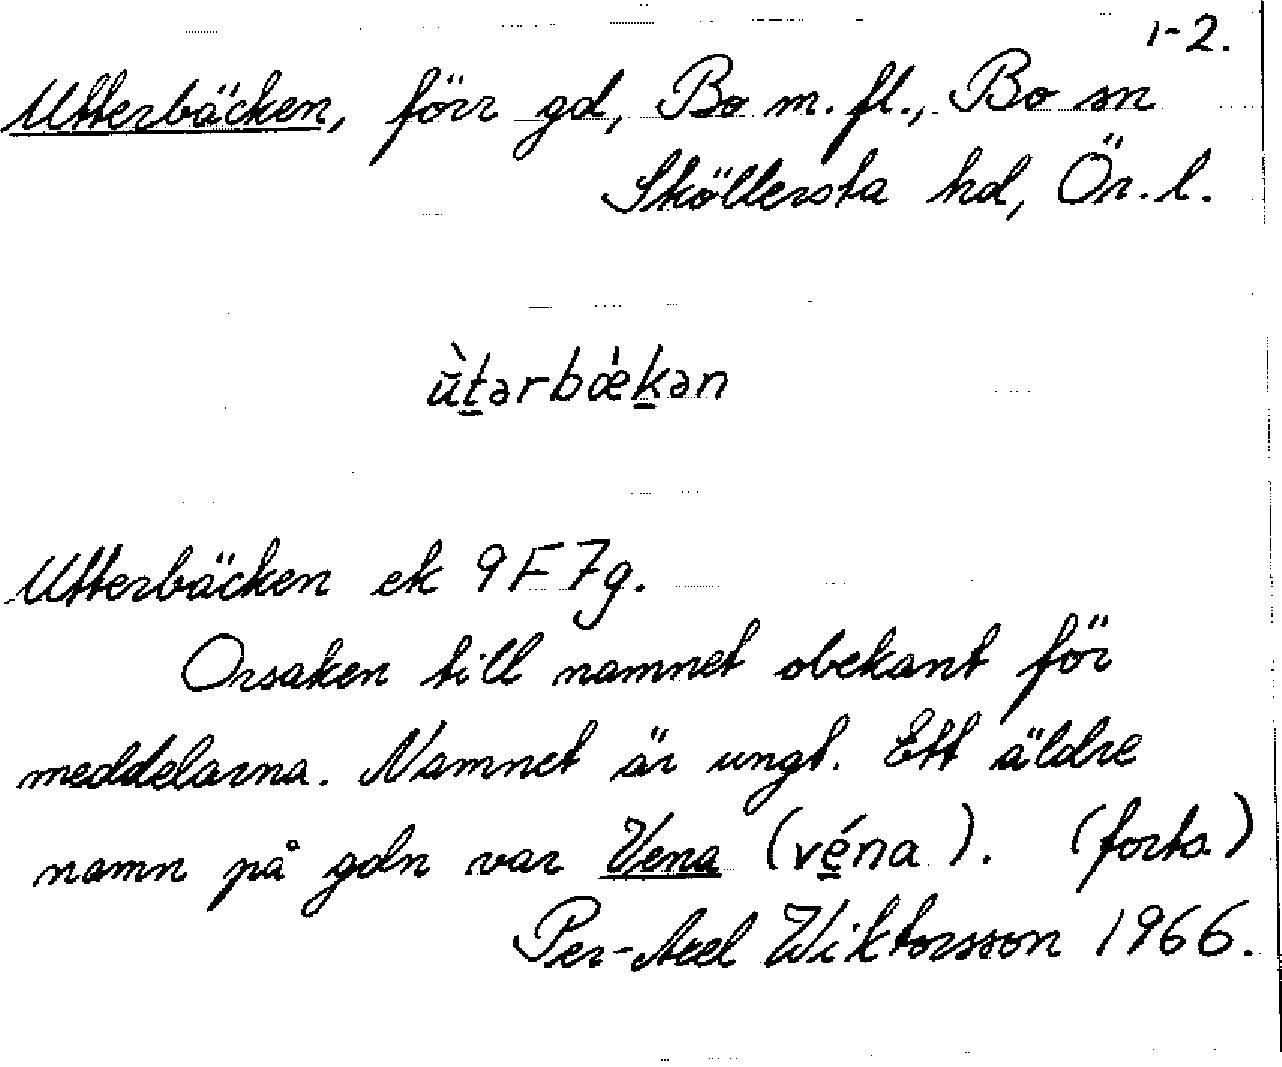 1-2.
Utterbäcken, förr gd, Bo m. fl., Bo sn
Sköllersta hd, Ör. l.
ùtərbǽkən
Utterbäcken ek 9F7g.
Orsaken till namnet obekant för
meddelarna. Namnet är ungt. Ett äldre
namn på gdn var Vena (véna). (forts.)
Per-Axel Wiktorsson 1966.